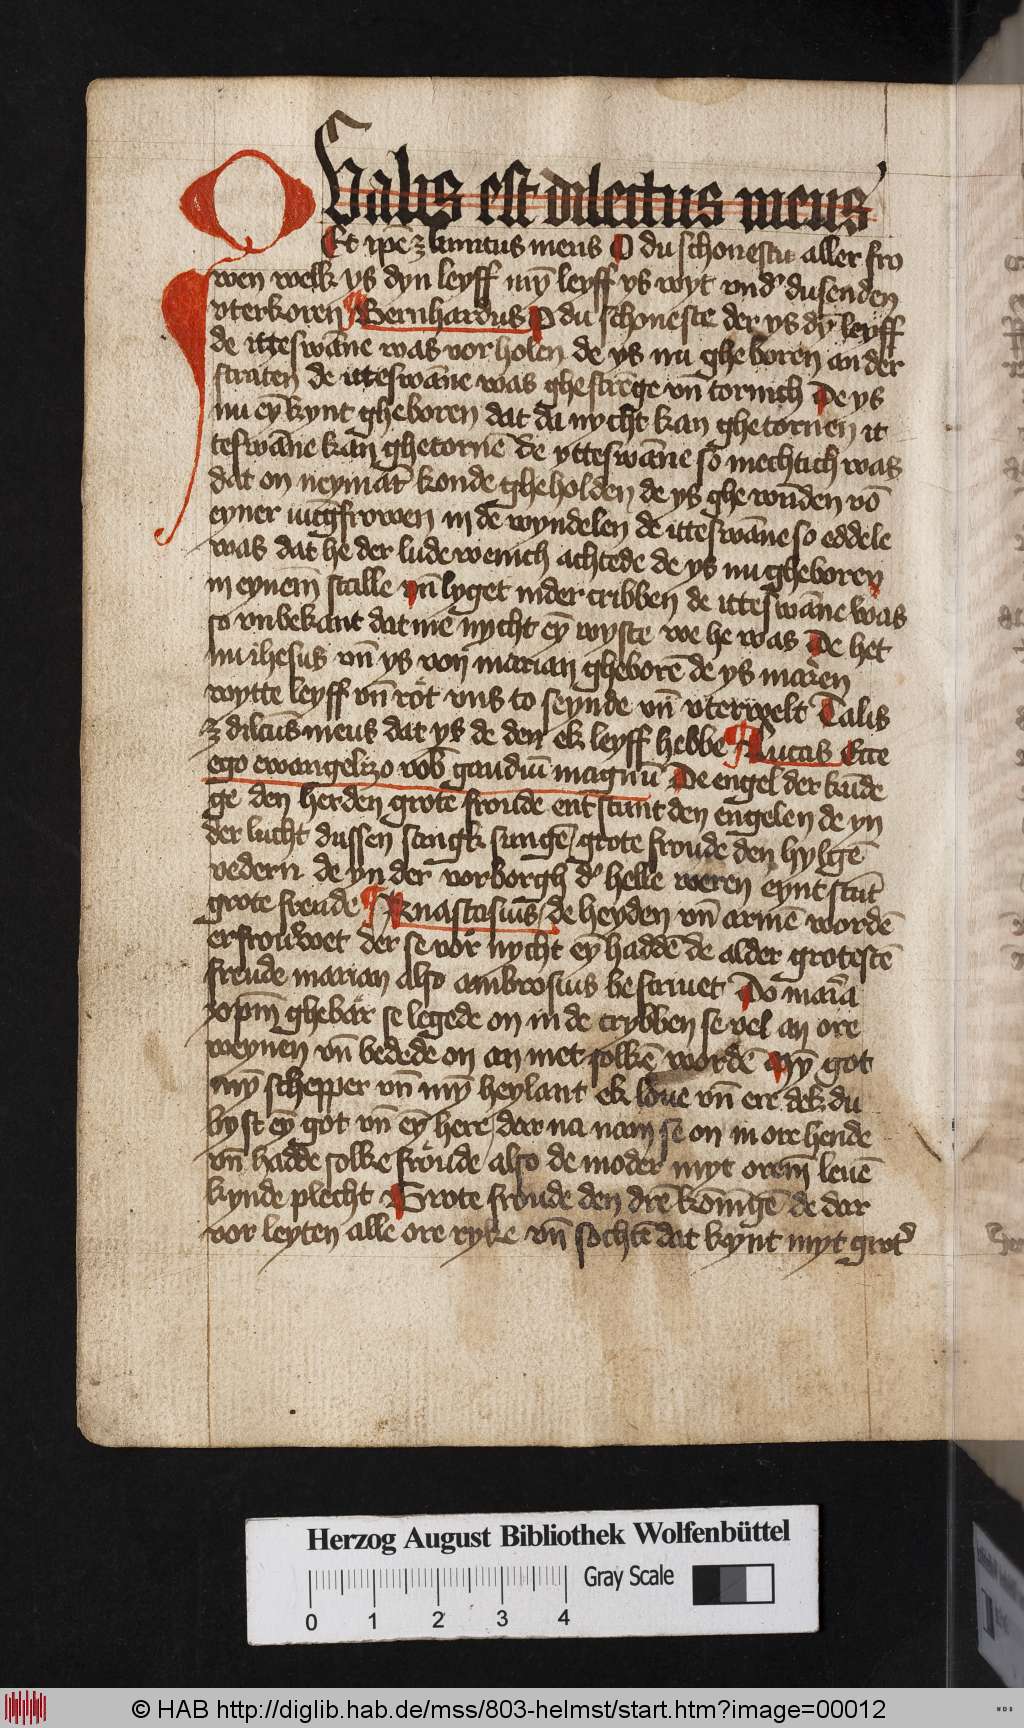 Talis est dilectus meus
Et ipē ꝫ amicus meus O du schoneste aller fro
wen welk ys dyn leyff mȳ leyff ys wyt vnd' dusenden
vterkoren Bernhardus O du schoneste der ys dȳ leyff
de itteswāne was vorholen de ys nu ghe boren an der
straten de itteswāne was ghestrēge vn̄ tornich De ys
nu eȳ kynt gheboren dat da nycht kan ghetornen it
teswāne kan ghetornē de ytteswāne so mechtich was
dat on neymāt konde gheholden de ys ghe wūden vō
eyner iūcgfrowen in de wyndelen de itteswāne so eddele
was dat he der lude wenich achtede de ys nu gheboren
in eynem̄ stalle vn̄ lyget inder cribben de itteswāne was
so vnbekant dat mē nycht eȳ wyste we he was De het
nu ihesus vn̄ ys von marian gheborē de ys
wytte leyff vn̄ rot vns to seynde vn̄ vterwelt Talis
ꝫ dilcūs meus dat ys de den ek leyff hebbe Lucas Ecce
ego ewangelizo vob̄ gaudiū magnū De engel der kūde
ge den herden grote froude entstunt den engelen de yn
der lucht dussen sangk sungē grote froude den hylgē
vedern de yn der vorborgh d' helle weren eynt stūt
grote freude Anastasius de heyden vn̄ armē wordē
erfrouwet der se vor nycht eȳ haddē de alder grotestē
freude marian also ambrosius bescriuet Do maria
xp̄m ghebar se legede on in de crybben se vel an ore
weynen vn̄ bedede on an met solkē wordē Mȳ got
mȳ schepper vn̄ mȳ heylant ek loue vn̄ ere dek du
byst eȳ got vn̄ eȳ here dar na nam se on in ore hende
vn̄ hadde solke froude also de moder myt orem̄ leuē
kynde plecht Grote froude den drē konīgē de dar
vor leyten alle ore ryke vn̄ sochtē dat kynt myt grot'
Herzog August Bibliothek Wolfenbüttel
Gray Scale
0 1 2 3 4
© HAB http://diglib.hab.de/mss/803-helmst/start.htm?image=00012